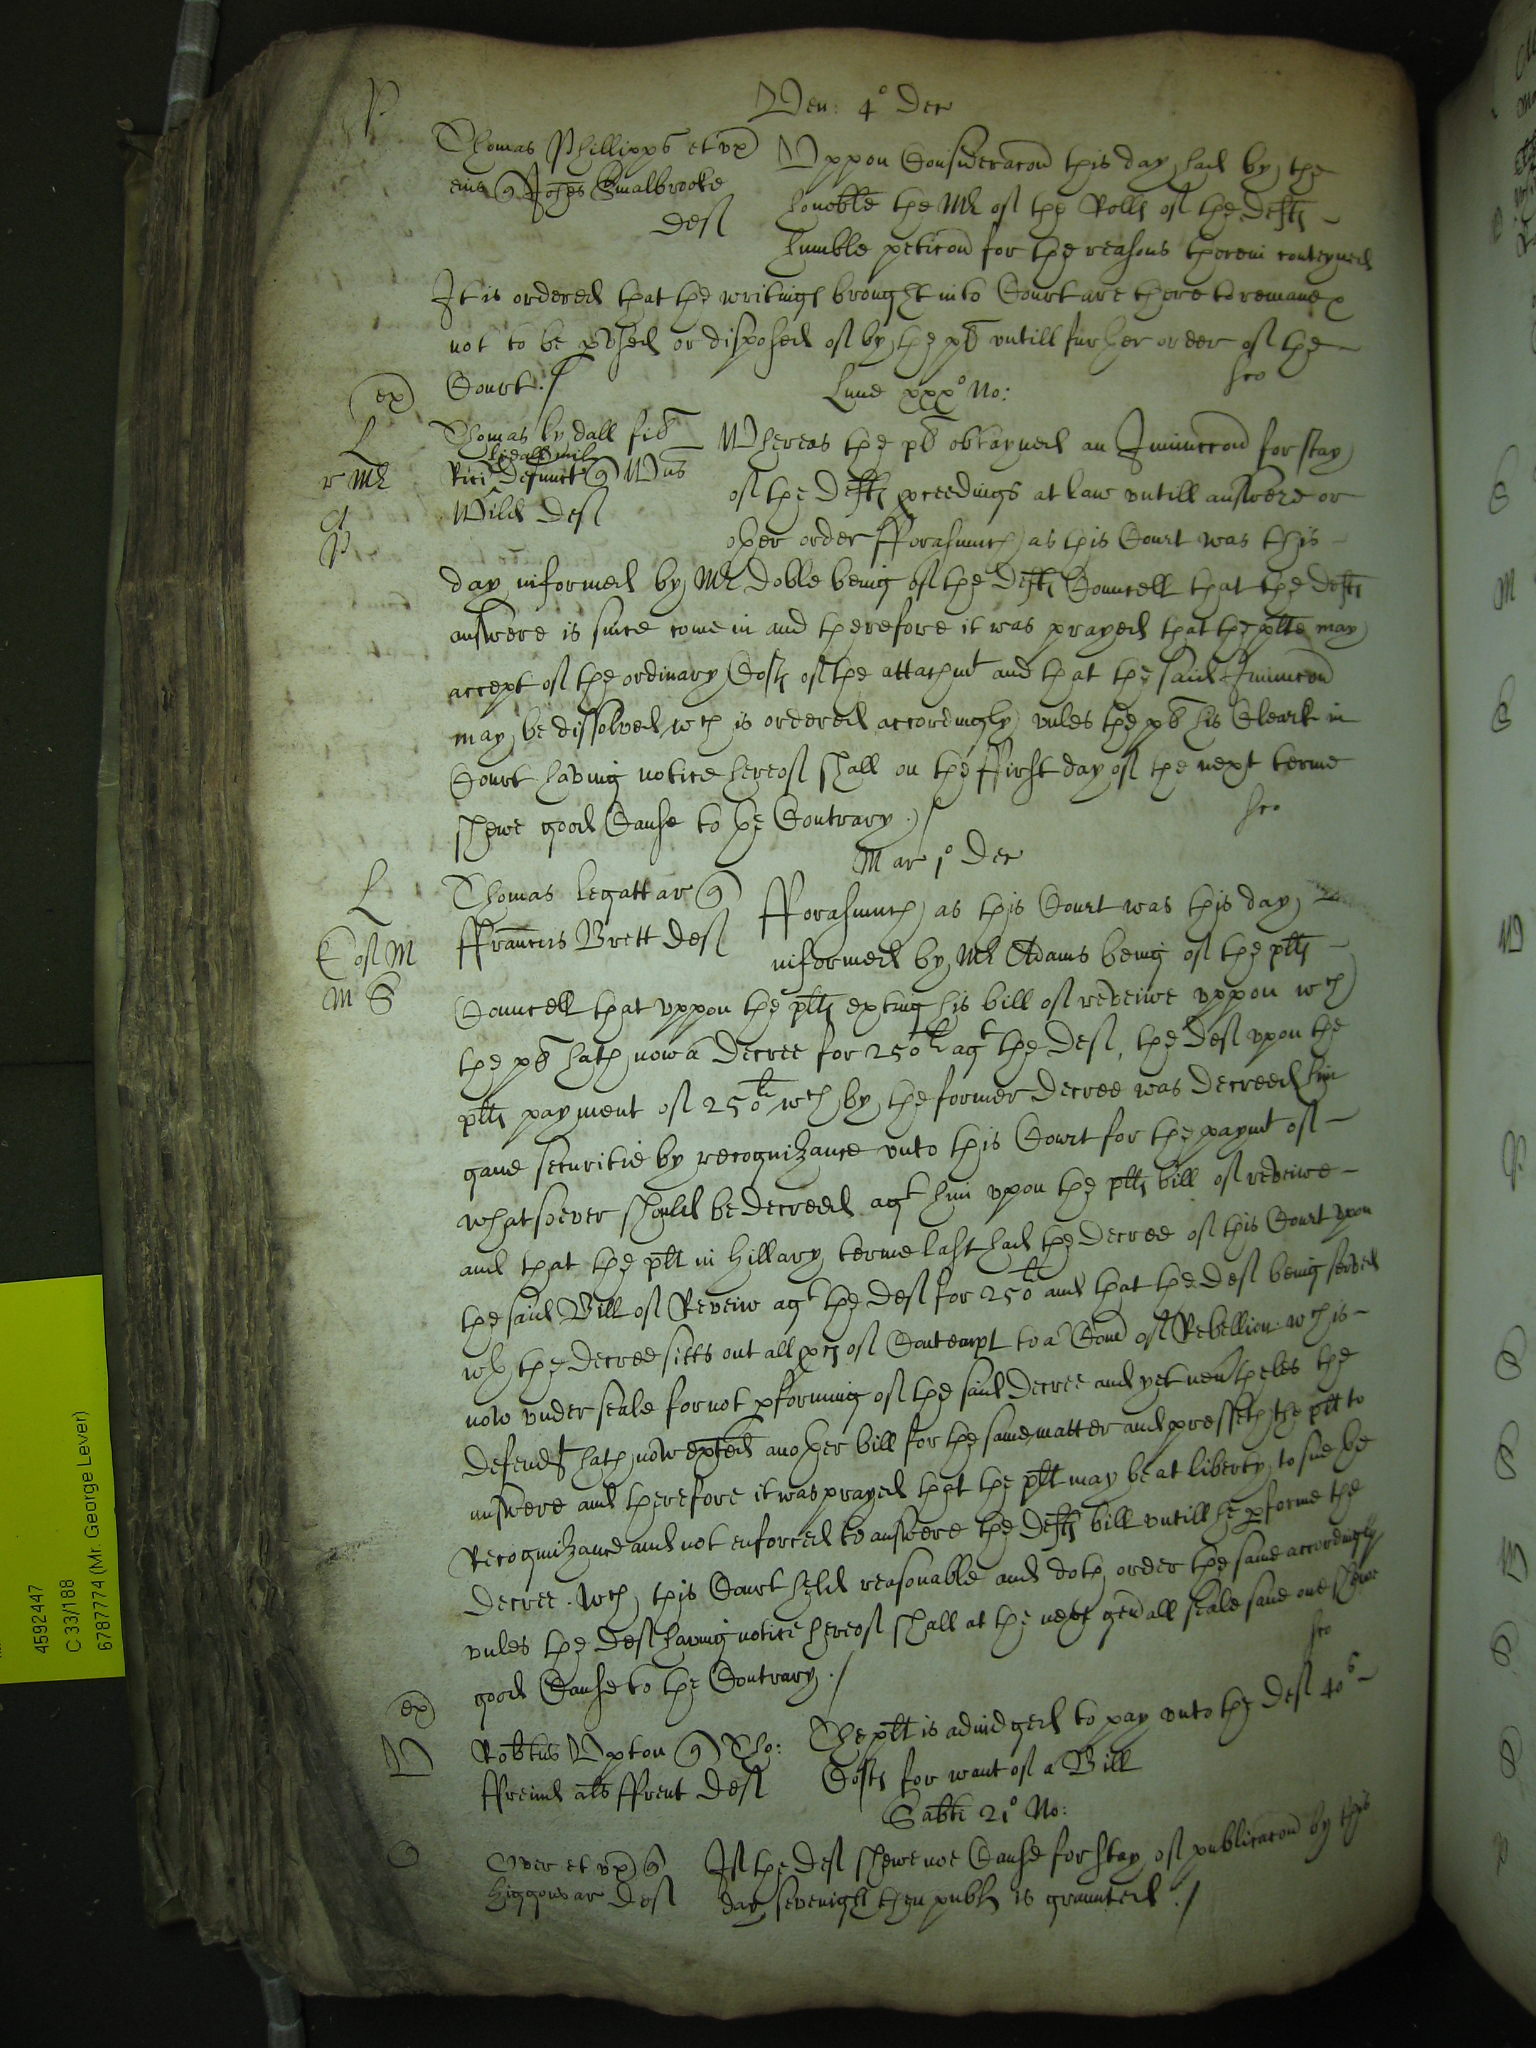 P
Ven: 4° Dec
Thomas Phillipps et ux
eius Johes Smalbrooke
Deft
Uppon Consideracon this day had by the
honoble the Mr of the Rolls of the Defts
humble peticon for the reasons therein conteyned
It is ordered that the writings brought into Court are there to remane
not to be used or disposed of by the pl untill further order of the
Court
ex
Lune xxx° No:
L
r Mr
A
P
Thomas lydall fil
Rici Defunct Wms
Wild Deft
Whereas the pl obtayned an Iniunccon for stay
of the Defts pceedings at law untill answere or
other order fforasmuch as this Court was this
day informed by Mr Doble being of the Defts Councell that the Defts
answere is since come in and therefore it was prayed that the plte may
accept of the ordinary Costs of the attachmt and that the said Iniunccon
may be dissolved wch is ordered accordingly unles the pl his Clearke in
Court having notice hereof shall on the ffirst day of the next terme
shewe good Cause to the Contrary
Mar 1° Dec
L
M S
Thomas Legatt ar
ffrancis Brett Deft
fforasmuch as this Court was this day
informed by Mr Adams being of the plts
Councell that uppon the plts exting his bill of reveiwe uppon wch
the pl hath now a Decree for 250li agt the Deft, the Deft upon the
plts payment of 250li wch by the former Decree was decreed him
gave securitie by recognizance unto this Court for the paymt of
whatsoever should be decreed agt him upon the plts bill of reveiwe
and that the plt in Hillary terme last had the decree of this Court upon
the said Bill of Reveiw agt the Deft for 250li and that the Deft being served
wth the Decree sitts out all pces of Contempt to a Com of Rebellion wch is
now under seale for not pforming of the said Decree and yet neutheles the
Defendt hath now exted another bill for the same matter and presseth the plt to
answere and therefore it was prayed that the plt may be at liberty to sue the
Recognizance and not enforced to answere the Defts bill untill he pforme the
Decree. Wch this Court held reasonable and doth order the same accordingly
unles the Deft having notice hereof shall at the next genall seale save one shewe
good Cause to the Contrary
ex
V
Robtus Upton Tho:
ffreind als ffrent Deft
The plt is adiudged to pay unto the Deft 40s
Costs for want of a Bill
Sabti 21° No:
O
Over et ux
Higgons ar Deft
If the Deft shewe noe Cause for stay of publicacon by this
day sevenight then publ is graunted
4592447
C 33/188
6787774 (Mr. George Lever)